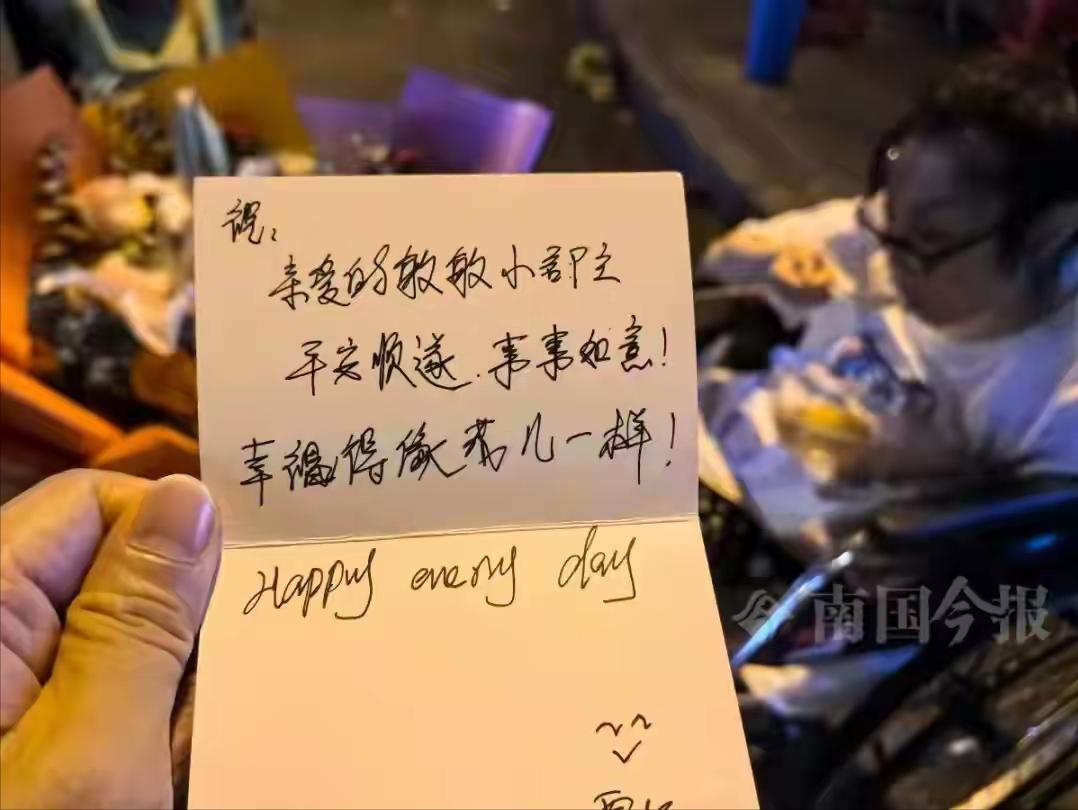 祝：
亲爱的敏敏小郡主
平安顺遂.事事如意！
幸福得像花儿一样！
Happy every day
南国今报